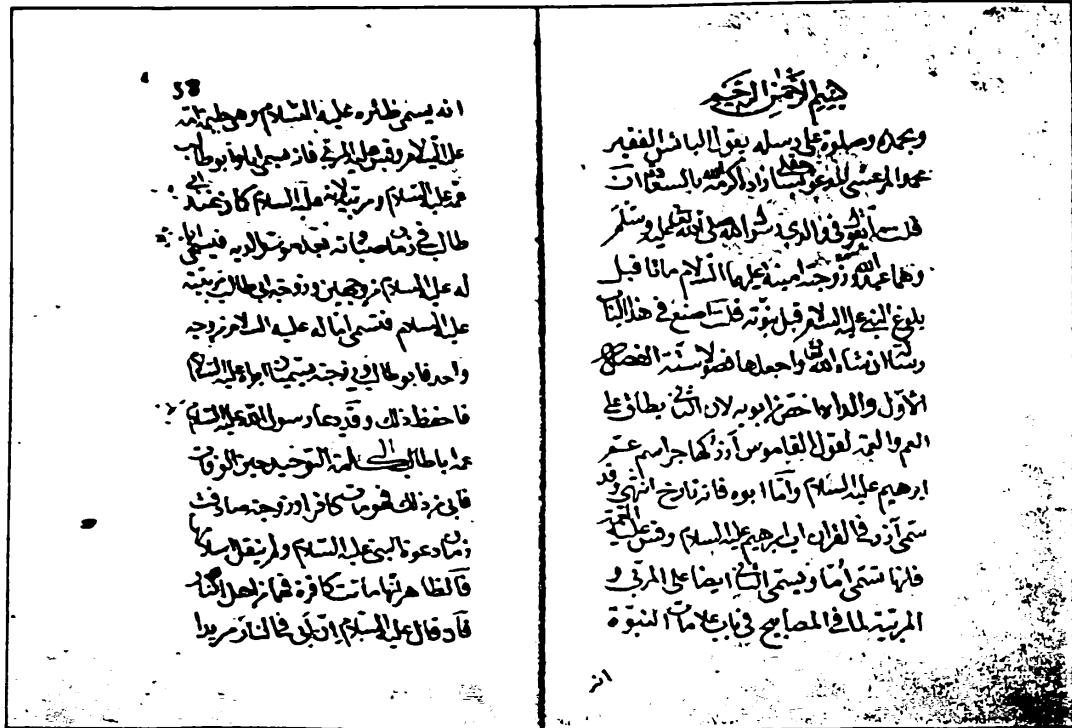 بسم الله الرحمن الرحيم
وبحمده وصلوة على رسله يقول البائس الفقير
محمد المرعشي المدعو بساجقلي زاده اكرمه الله بالسعادة ان
قلت ما تقول في والدي رسول الله صلى الله عليه وسلم
وهما عبد الله وزوجته امينة عليهما السلام ماتا قبل
بلوغ النبي عليه السلام قبل نبوته قلت اصنع في هذا الباب
رسالة ان شاء الله واجعلها فصولا ستة الفصل
الاول والدا اخص من ابويه لان الثاني يطلق على
العم والعمة لقول القاموس آزر كهاجر اسم عم
ابرهيم عليه السلام وأما ابوه فانه تارخ انتهى وقد
سمى آزر في القرآن اب ابرهيم عليه السلام وقس عليه العمة
فانها تسمى أمّا ويسمى الثاني ايضا على المربي و
المربية لما في المصابيح في باب علامات النبوة
انه
58
انه يسمى ظئره عليه السلام وهي حليمة امه
عليه السلام وقس عليه المربي فانه يسمى ابا وابو طالب
عمه عليه السلام ومربيه لانه عليه السلام كان عند ابي
طالب في زمان صباه بعد موت والديه فيسمى ابا
له عليه السلام من وجهين وزوجة ابي طالب مربيته
عليه السلام فتسمى اما له عليه السلام من وجه
واحد فابو طالب وزوجته يسميان ابواه عليه السلام
فاحفظ ذلك وقد دعا رسول الله عليه السلام
عمه ابا طالب الى كلمة التوحيد حين الوفات
فابى من ذلك فهو مات كافرا وزوجته صادفت
زمان دعوة النبي عليه السلام ولم ينقل اسلامها
فالظاهر انها ماتت كافرة فهما من اهل النار
فان قال عليه السلام ان ابي في النار مريدا